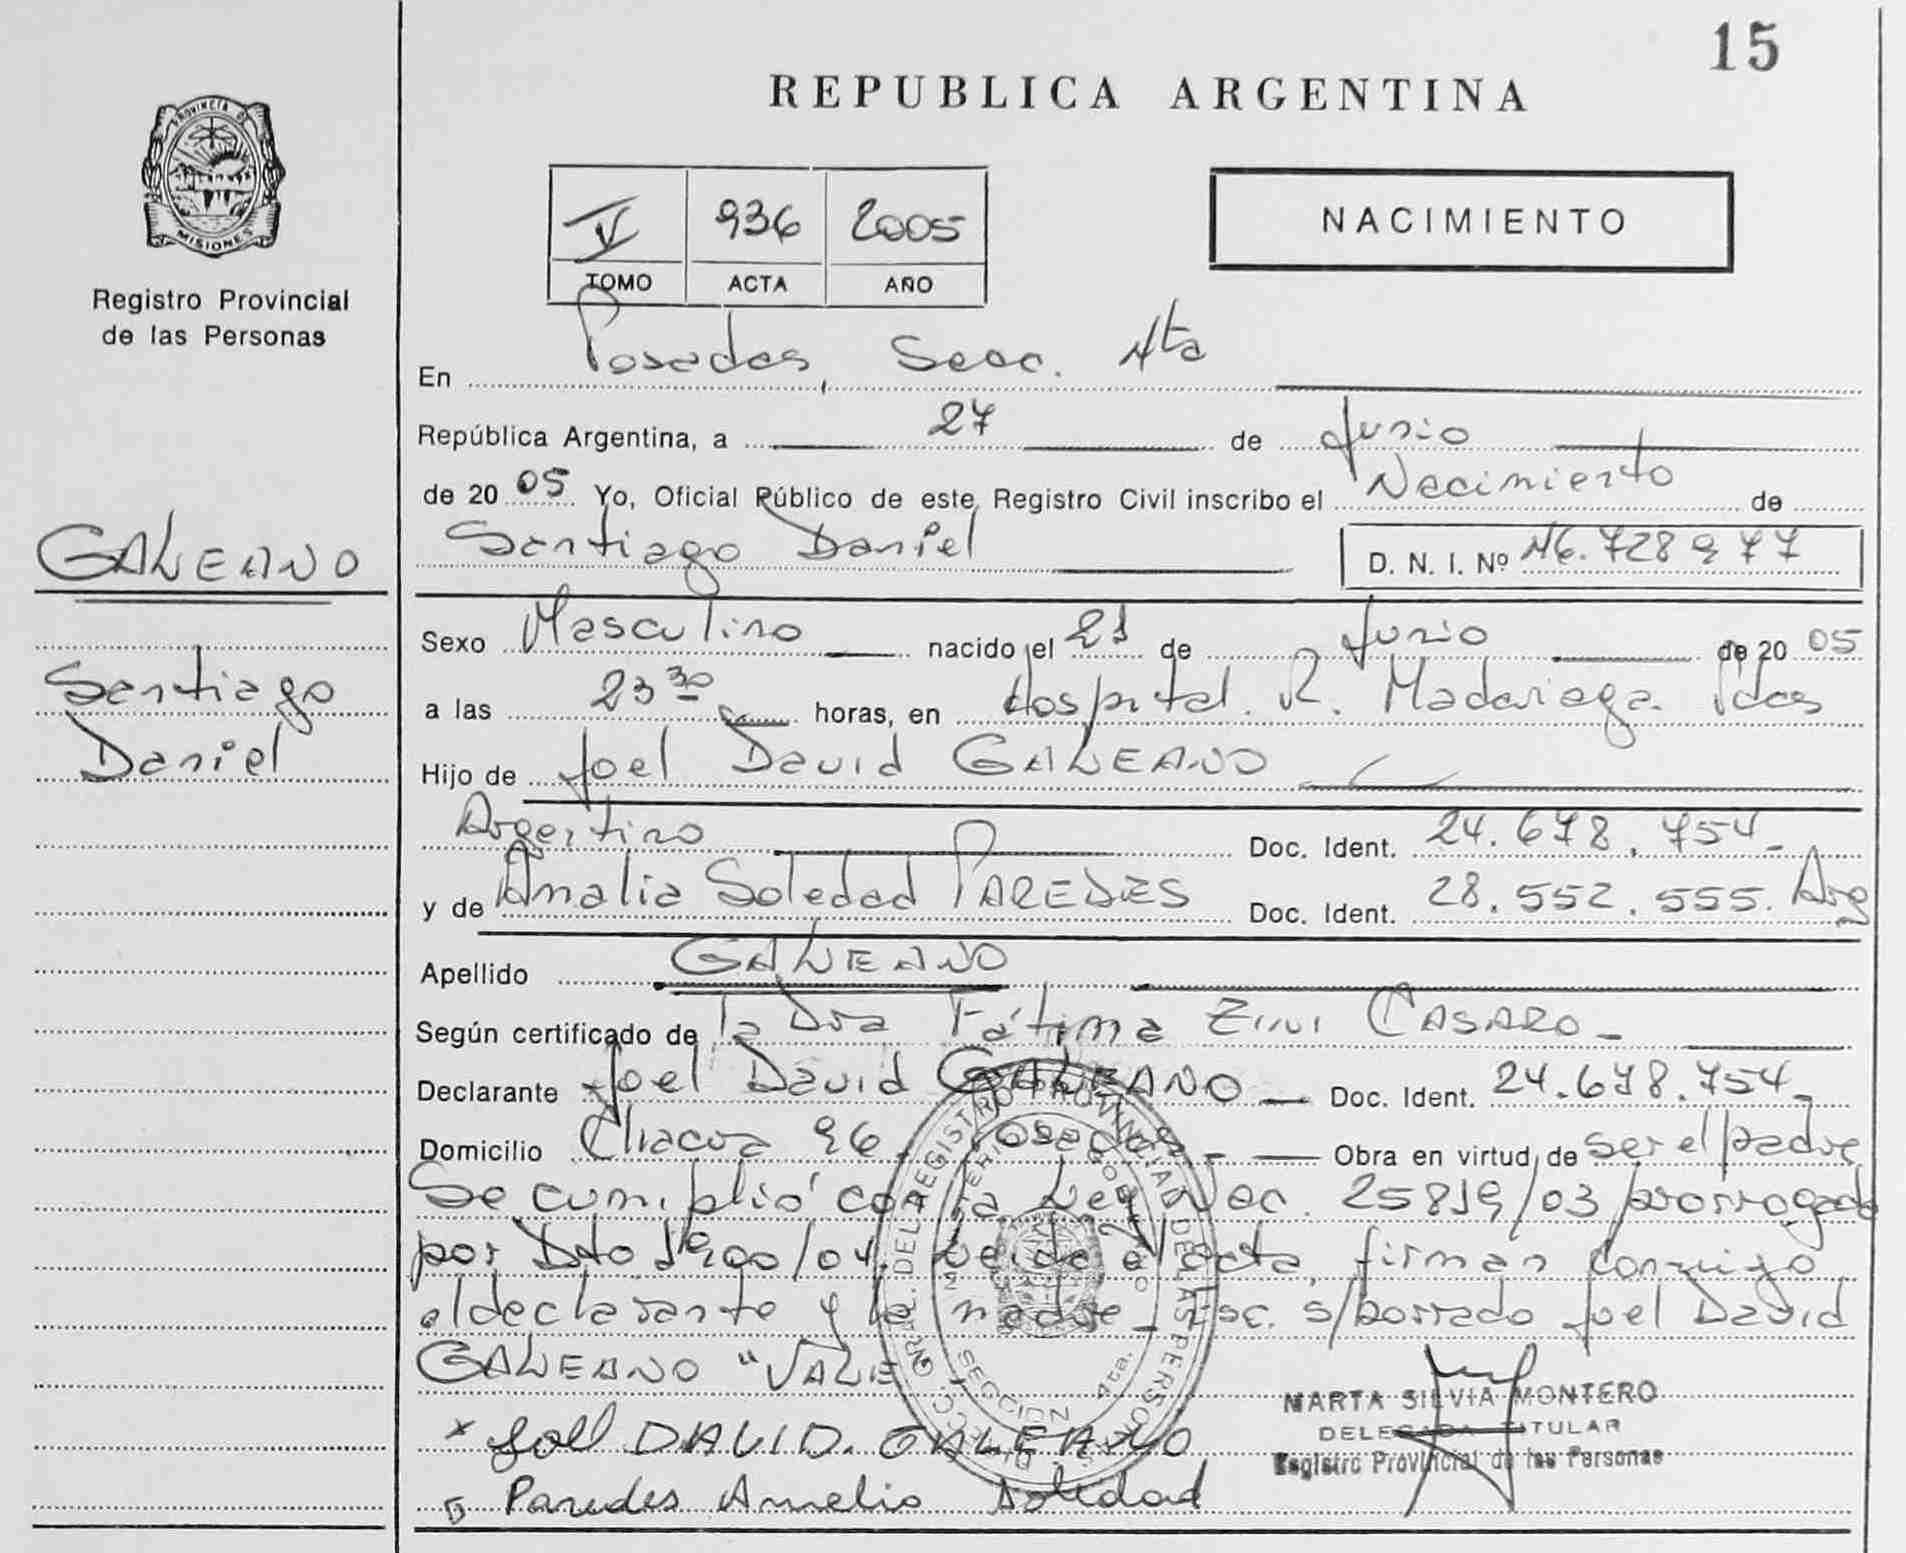 15
REPUBLICA ARGENTINA
PROVINCIA DE
MISIONES
Registro Provincial
de las Personas
V 936 2005
TOMO ACTA AÑO
NACIMIENTO
En Posadas, Secc. 4ta
República Argentina, a 27 de Junio
de 20 05 Yo, Oficial Público de este Registro Civil inscribo el Nacimiento de
Santiago Daniel D. N. I. Nº 46.728977
GALEANO
Santiago
Daniel
Sexo Masculino nacido el 21 de Junio de 20 05
a las 23 30 horas, en Hospital. R. Madariaga. Pdas
Hijo de Joel David GALEANO
Argentino Doc. Ident. 24.678.754_
y de Amalia Soledad PAREDES Doc. Ident. 28.552.555. Arg
Apellido GALEANO
Según certificado de la Dra Fátima Zini CASARO_
Declarante Joel David GALEANO Doc. Ident. 24.678.754_
Domicilio Chacra 96. Posadas_ Obra en virtud de ser el padre
Se cumplió con la Ley Nac. 25819/03 prorrogada
por Dto 1900/04. Leida el acta, firman conmigo
el declarante y la madre_ Esc. s/borrado Joel David
GALEANO "VALE
MARTA SILVIA MONTERO
DELEGADA TITULAR
Registro Provincial de las Personas
x Joel DAVID. GALEANO
Paredes Amelia Soledad
SECCION 4ta.